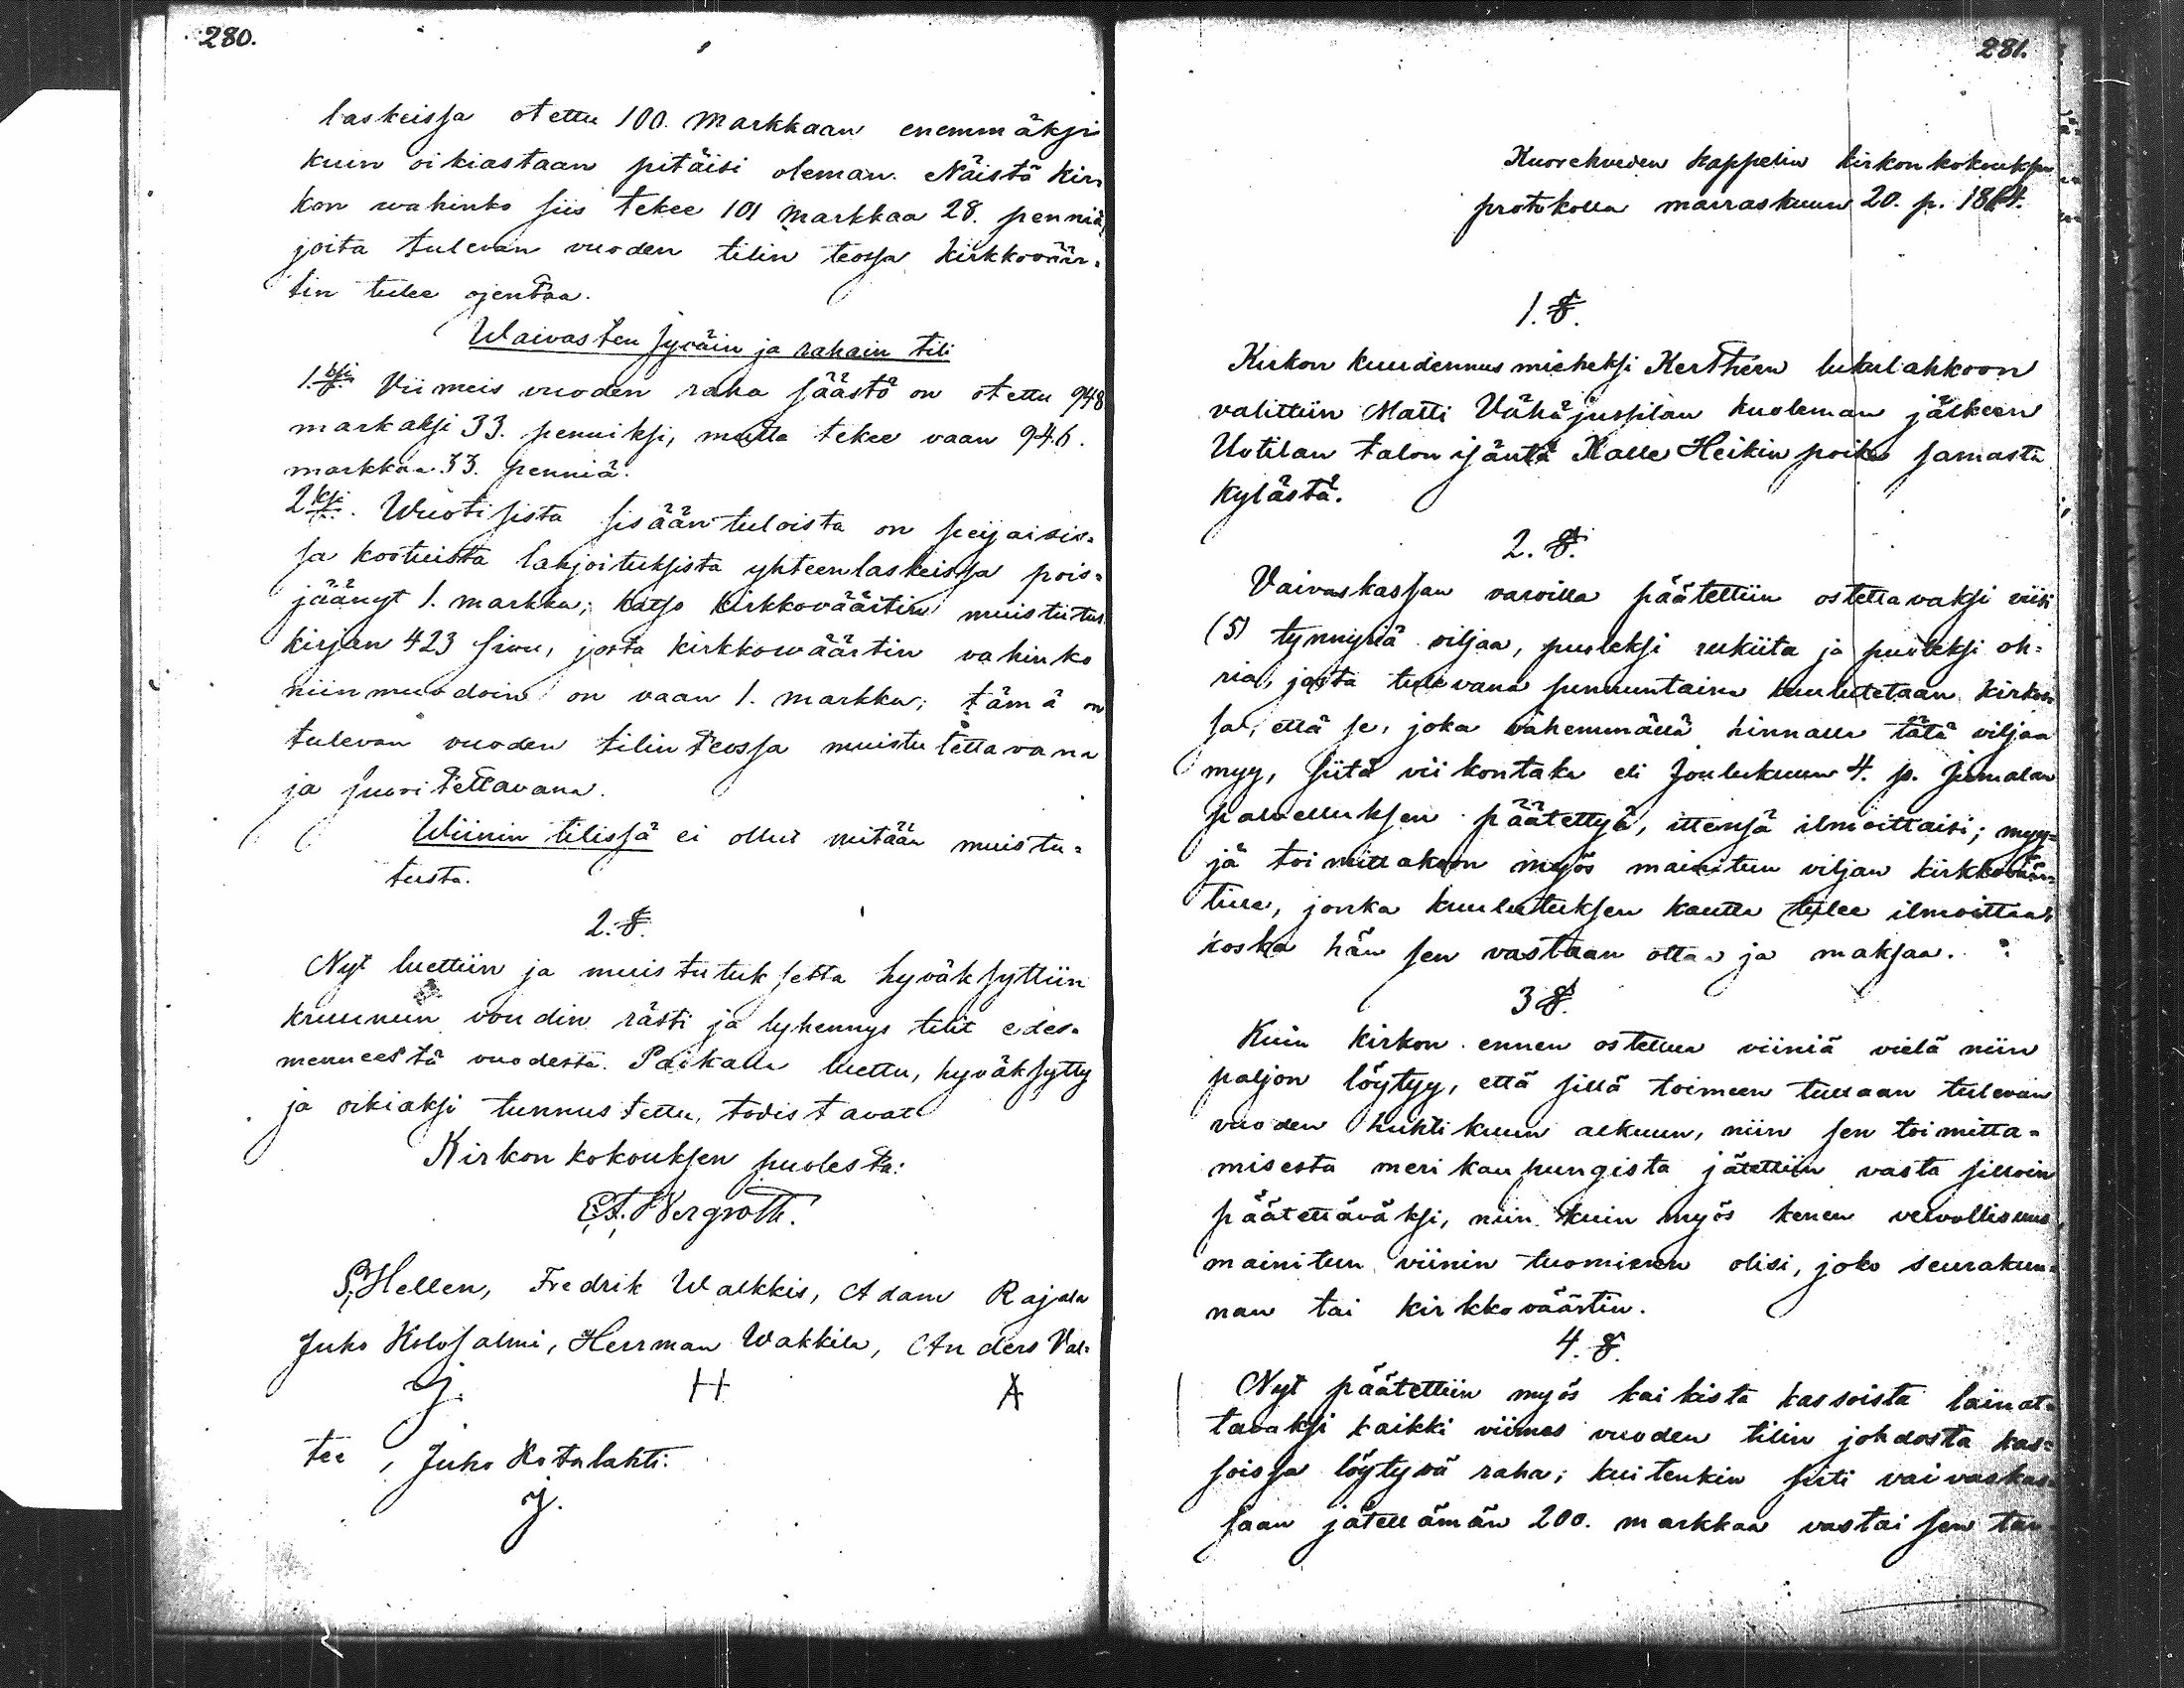 280.
laskeissa otettu 100. markkaan enemmäksi
kuin oikiastaan pitäisi oleman. Näistä kir-
kon wahinko siis tekee 101 markkaa 28. penniä,
joita tulevan vuoden tilin teossa kirkkovöär-
tin tulee ojentaa.
Waivasten jyväin ja rahain tili
1.ksi Viimeis vuoden raha säästö on otettu 948
markaksi 33. penniksi, mutta tekee vaan 946.
markkaa 33. penniä.
2ksi. Wuotisista sisääntuloista on peijaisis-
sa kootuista lahjoituksista yhteenlaskeissa pois-
jäänyt 1. markka; katso kirkkoväärtin muistutus
kirjan 423 sivu, josta kirkkowäärtin vahinko
niinmuodoin on vaan 1. markka; tämä on
tulevan vuoden tilinteossa muistutettavana
ja suoritettavana.
Wiinin tilissä ei ollut mitään muistu-
tusta.
2. §.
Nyt luettiin ja muistutuksetta hyväksyttiin
kruunun voudin rästi ja lyhennys tilit edes-
menneestä vuodesta. Paikalla luettu, hyväksytty
ja oikiaksi tunnustettu, todistavat
Kirkon kokouksen puolesta:
E. A. Bergroth.
S. Hellen, Fredrik Walkkis, Adam Rajala
Juho Kolosalmi, Herrman Wakkila, Anders Val-
J. H A
tee, Juho Kotalahti.
J.
281.
Kuorehveden kappelin kirkonkokouksen
protokolla marraskuun 20. p. 1864.
1. §.
Kirkon kuudennusmieheksi Kertteen lukulahkoon
valittiin Matti Vähäjussilan kuoleman jälkeen
Uotilan talon isäntä Kalle Heikin poika samasta
kylästä.
2. §.
Vaivaskassan varoilla päätettiin ostettavaksi viisi
(5) tynnyriä viljaa, puoleksi rukiita ja puoleksi oh-
ria, josta tulevana sunnuntaina kuulutetaan kirkos-
sa, että se, joka vähemmällä hinnalla tätä viljaa
myy, siitä viikontaka eli Joulukuun 4. p. jumalan
palvelluksen päätettyä, ittensä ilmoittaisi; myy-
jä toimittakoon myös mainitun viljan kirkkovär-
tille, jonka kuulutuksen kautta tulee ilmoittaa,
koska hän sen vastaan ottaa ja maksaa.
3 §.
Kuin kirkon ennen ostettua viiniä vielä niin
paljon löytyy, että sillä toimeen tullaan tulevan
vuoden huhtikuun alkuun, niin sen toimitta-
misesta merikaupungista jätettiin vasta silloin
päätettäväksi, niin kuin myös kenen velvollisuus
mainitun viinin tuominen olisi, joko seurakun-
nan tai kirkkoväärtin.
4. §.
Nyt päätettiin myös kaikista kassoista lainat-
tavaksi kaikki viimes vuoden tilin johdosta kas-
soissa löytyvä raha; kuitenkin piti vaivaskas-
saan jätettämän 200. markkaa vastaisen tar-